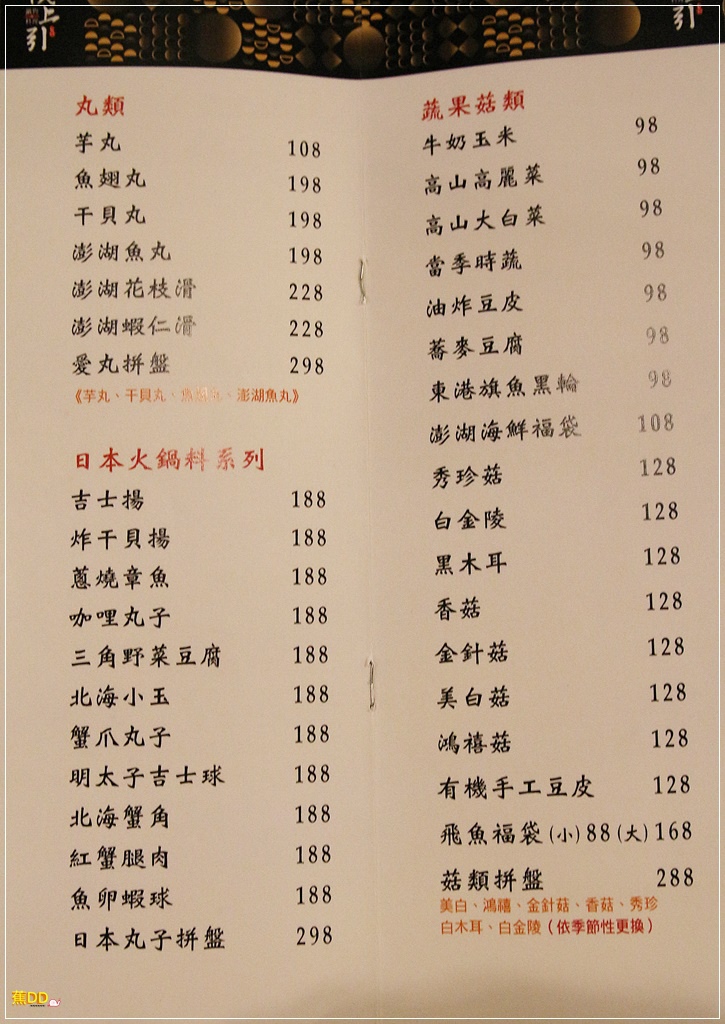 上引
上引
丸類
芋丸 108
魚翅丸 198
干貝丸 198
澎湖魚丸 198
澎湖花枝滑 228
澎湖蝦仁滑 228
愛丸拼盤 298
《芋丸、干貝丸、魚翅丸、澎湖魚丸》
日本火鍋料系列
吉士揚 188
炸干貝揚 188
蔥燒章魚 188
咖哩丸子 188
三角野菜豆腐 188
北海小玉 188
蟹爪丸子 188
明太子吉士球 188
北海蟹角 188
紅蟹腿肉 188
魚卵蝦球 188
日本丸子拼盤 298
蔬果菇類
牛奶玉米 98
高山高麗菜 98
高山大白菜 98
當季時蔬 98
油炸豆皮 98
蕎麥豆腐 98
東港旗魚黑輪 98
澎湖海鮮福袋 108
秀珍菇 128
白金陵 128
黑木耳 128
香菇 128
金針菇 128
美白菇 128
鴻禧菇 128
有機手工豆皮 128
飛魚福袋(小)88(大)168
菇類拼盤 288
美白、鴻禧、金針菇、香菇、秀珍
白木耳、白金陵(依季節性更換)
蕉DD